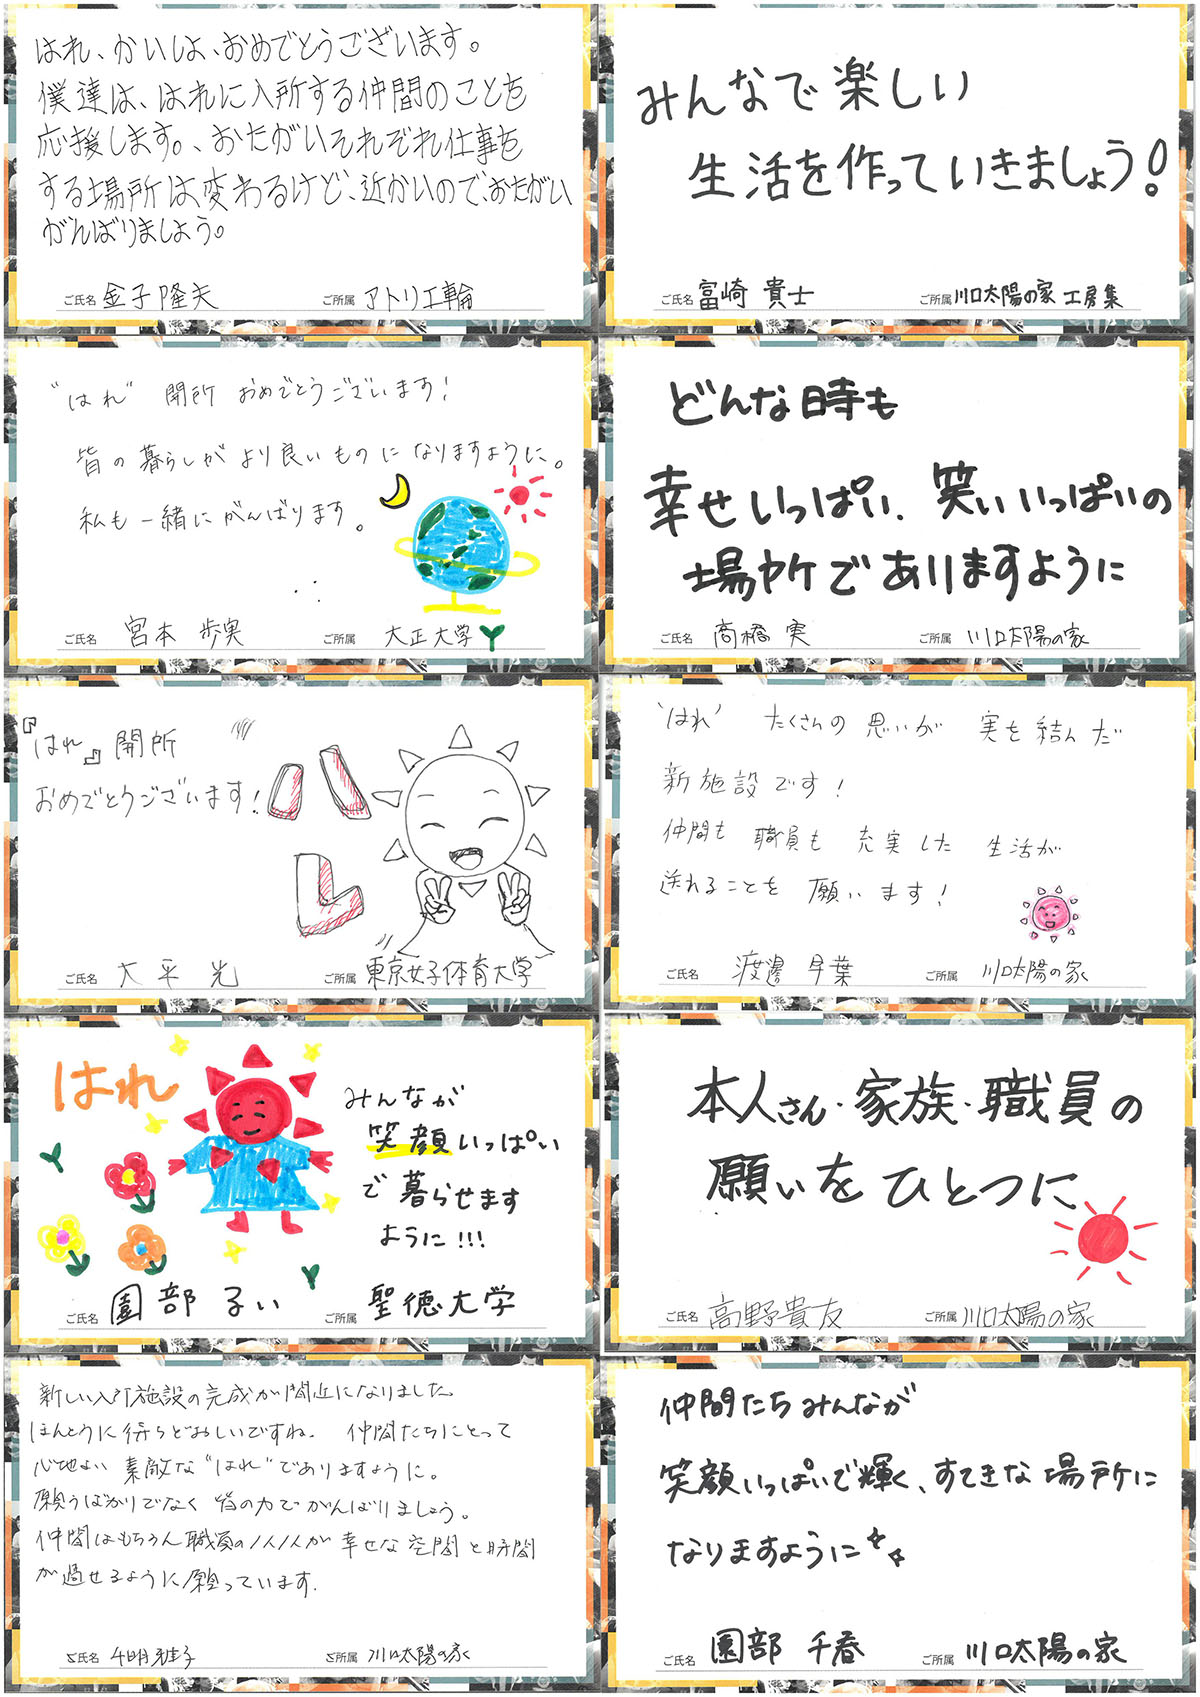 はれ、かいしょ、おめでとうございます。
僕達は、はれに入所する仲間のことを
応援します。、おたがいそれぞれ仕事を
する場所は変わるけど、近かいので、おたがい
がんばりましょう。
ご氏名 金子隆夫 ご所属 アトリエ輪
みんなで楽しい
生活を作っていきましょう!
ご氏名 冨崎 貴士 ご所属 川口太陽の家 工房集
"はれ" 開所 おめでとうございます!
皆の暮らしがより良いものになりますように。
私も一緒にがんばります。
ご氏名 宮本 歩実 ご所属 大正大学
どんな時も
幸せいっぱい、笑いいっぱいの
場所でありますように
ご氏名 高橋 実 ご所属 川口太陽の家
『はれ』開所
おめでとうございます!
ハレ
ご氏名 大平 光 ご所属 東京女子体育大学
'はれ' たくさんの思いが 実を結んだ
新施設です!
仲間も 職員も 充実した 生活が
送れることを 願います!
ご氏名 渡邊 早葉 ご所属 川口太陽の家
はれ
みんなが
笑顔いっぱい
で暮らせます
ように!!!
ご氏名 園部 るい ご所属 聖徳大学
本人さん・家族・職員の
願いをひとつに
ご氏名 高野貴友 ご所属 川口太陽の家
新しい入所施設の完成が間近になりました。
ほんとうに待ちどおしいですね。 仲間たちにとって
心地よい 素敵な"はれ"でありますように。
願うばかりでなく 皆の力でがんばりましょう。
仲間はもちろん職員の人人が幸せな空間と時間
が過せるように願っています。
ご氏名 ご所属 川口太陽の家
仲間たちみんなが
笑顔いっぱいで輝く、すてきな場所に
なりますように
ご氏名 園部 千春 ご所属 川口太陽の家